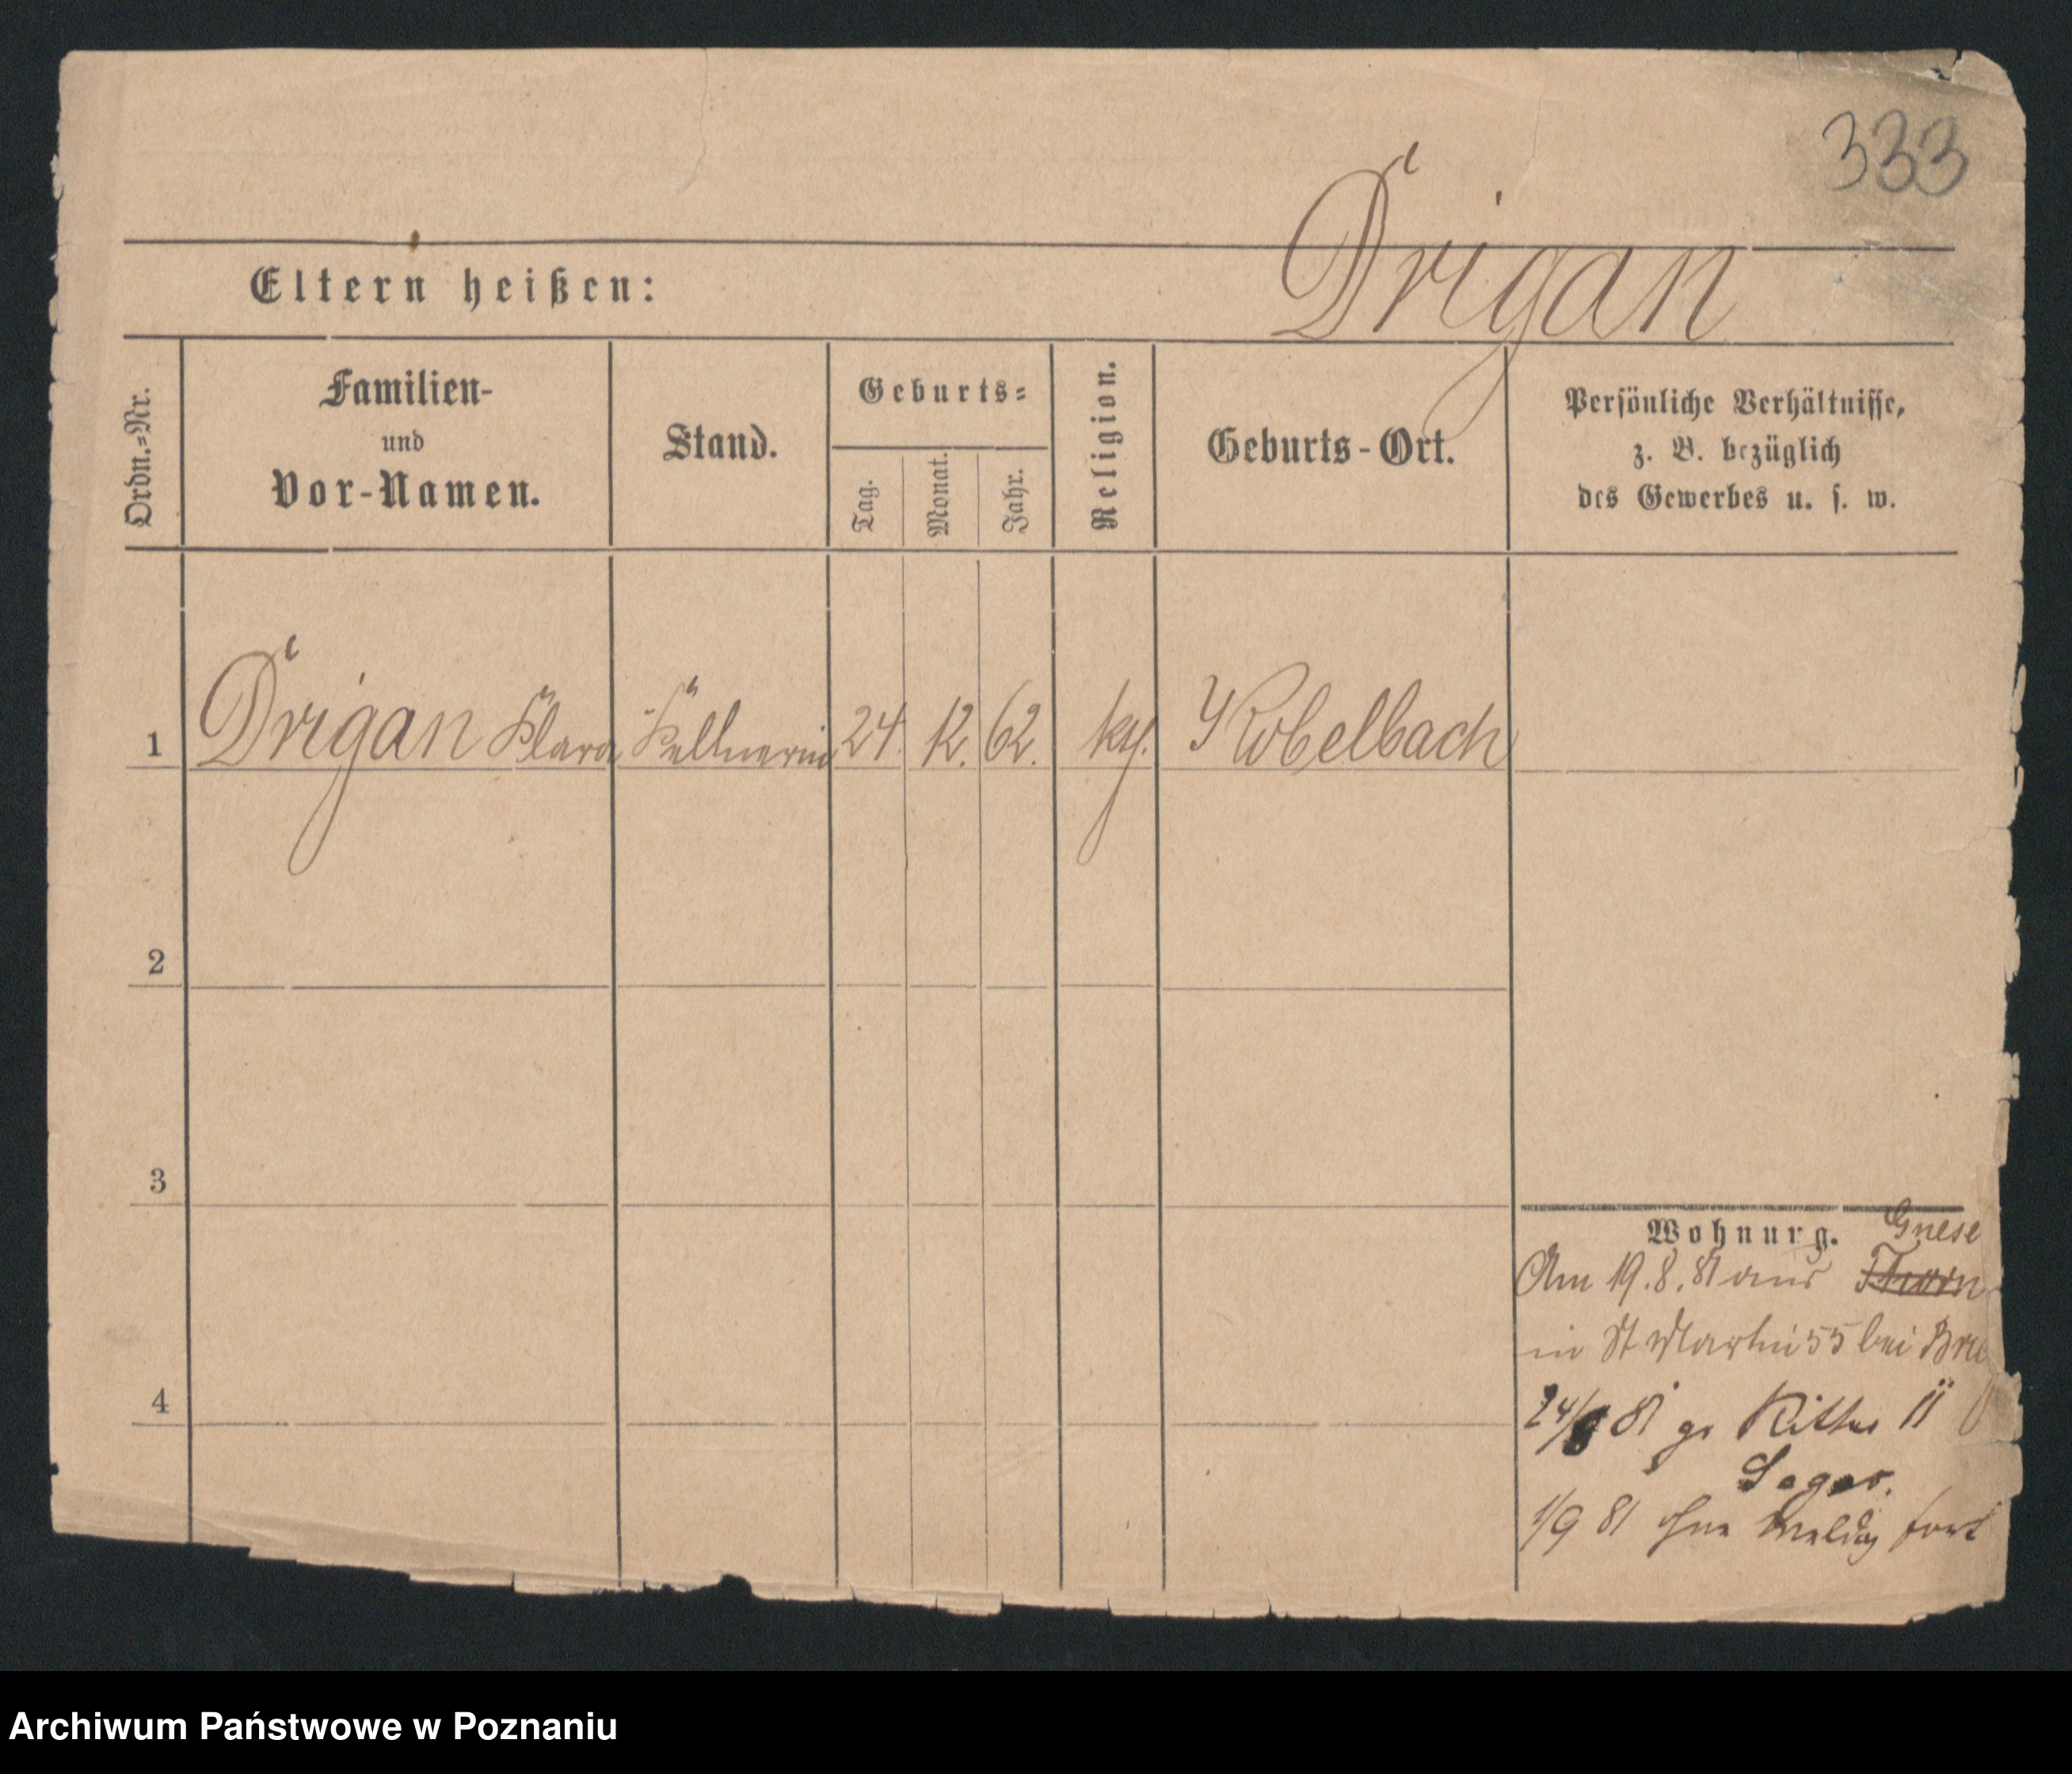 333
Drigan
Eltern heißen:
Ordn.=Nr.
Familien-
und
Vor-Namen.
Stand.
Geburts=
Tag.
Monat.
Jahr.
Religion.
Geburts-Ort.
Persönliche Verhältnisse,
z. B. bezüglich
des Gewerbes u. s. w.
1 Drigan Klara Kellnerin 24. 12. 62.
2
3
4
Wohnung. Gnese
Am 19.8.81 aus Thorn
in St Martin 55 bei
81 gr Ritter 11
1/9 81 ohne Meldg fort
Archiwum Państwowe w Poznaniu